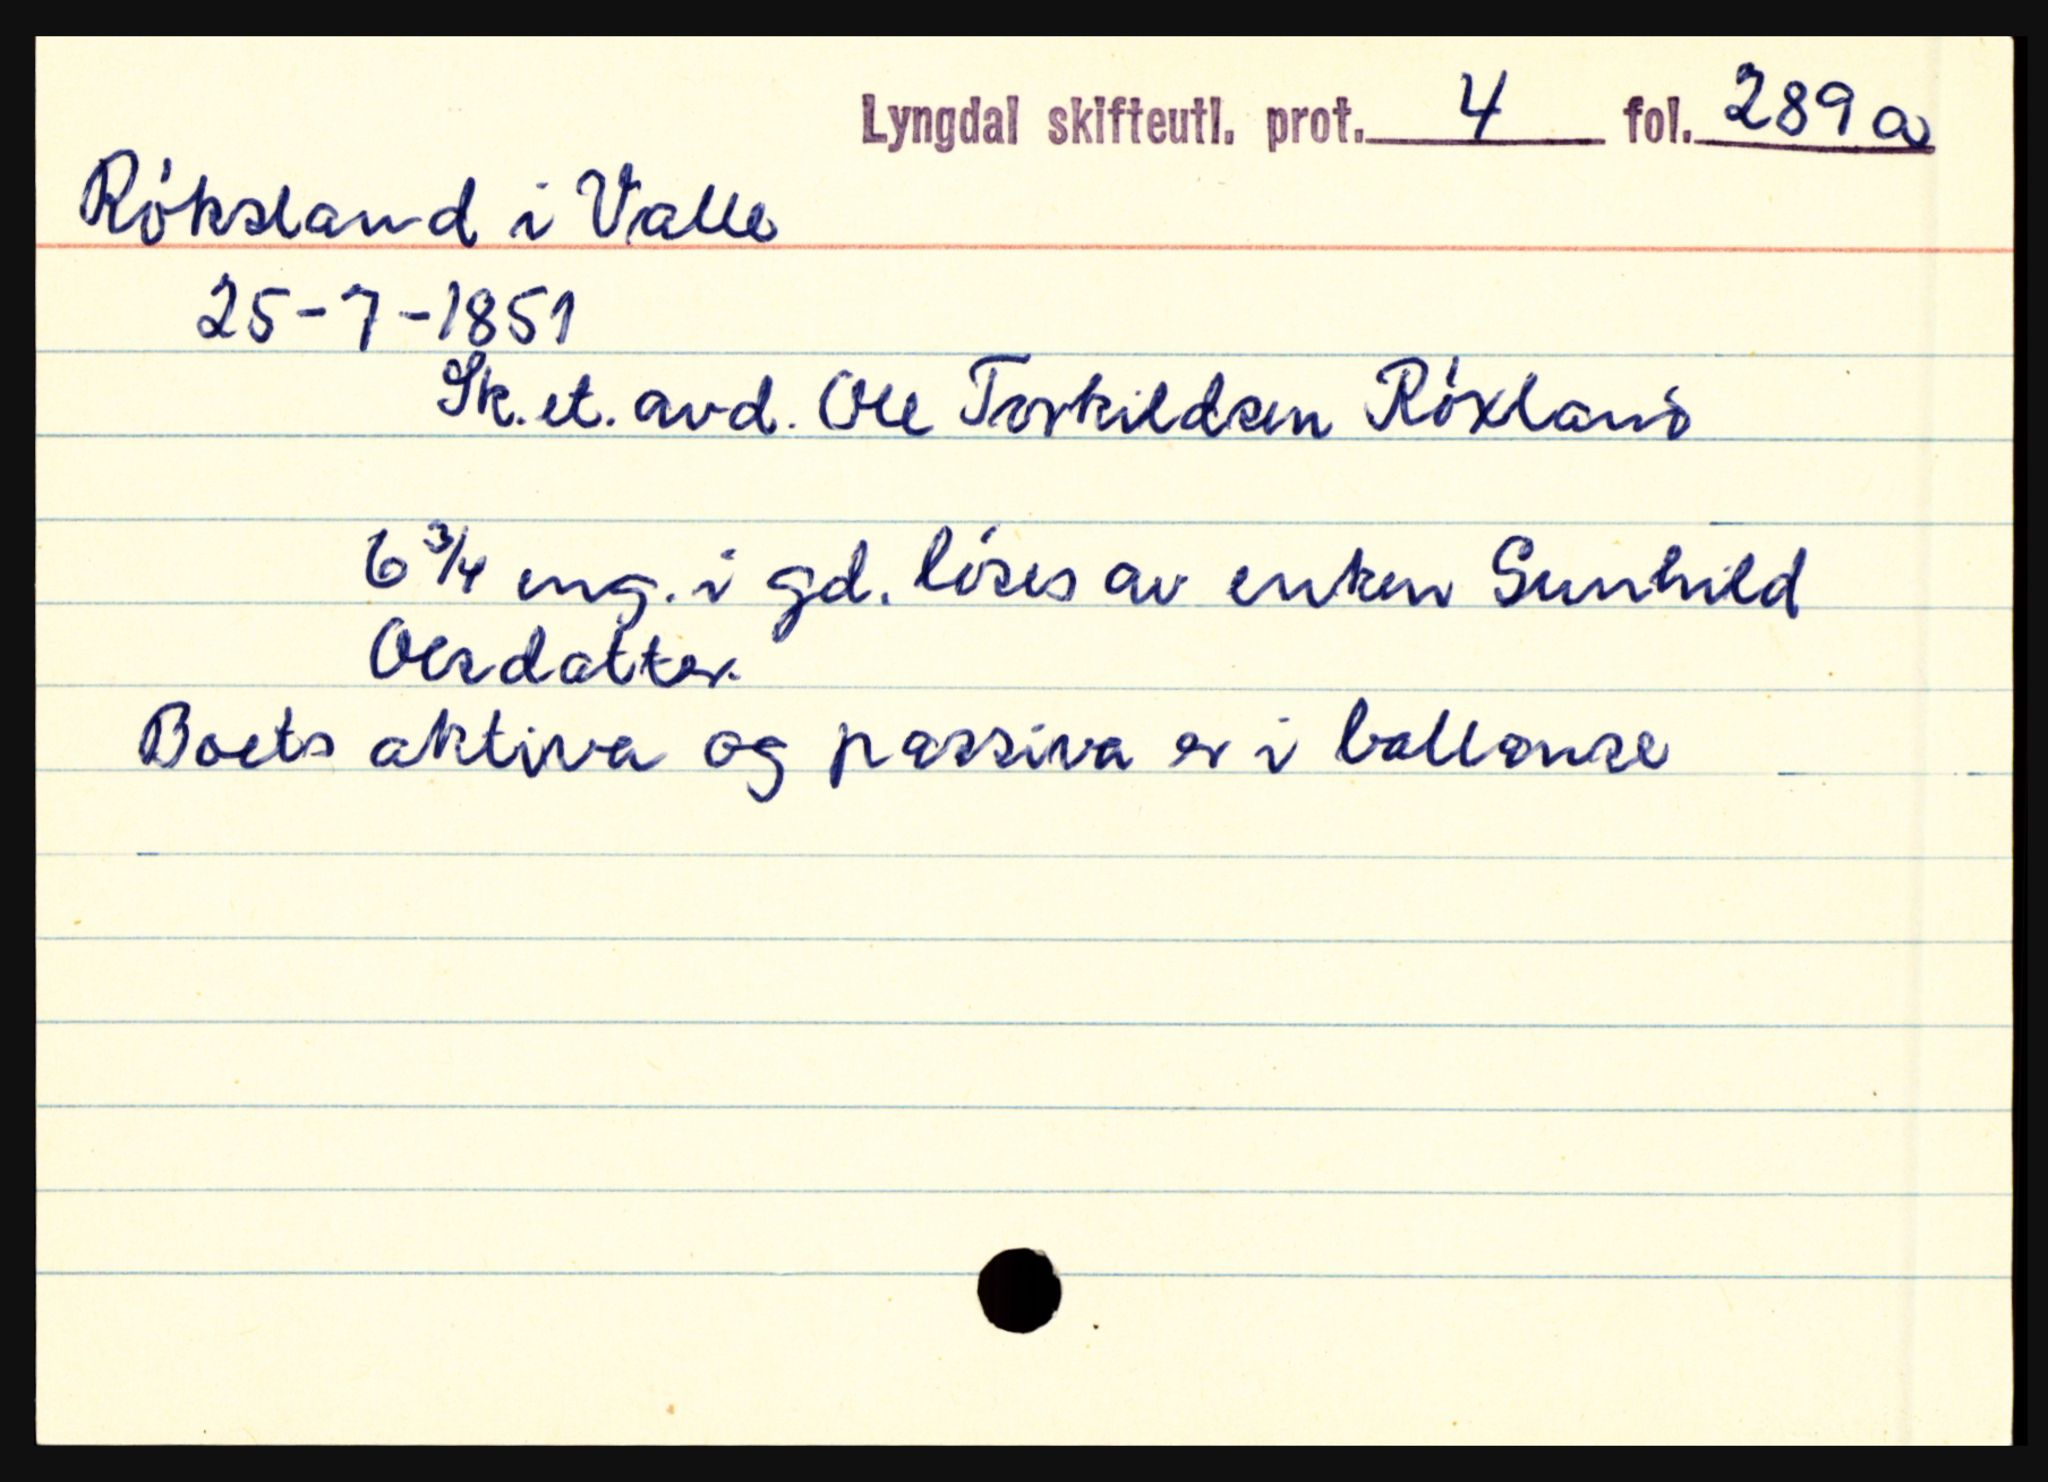 Lyngdal skifteutl. prot. 4 fol. 289a
Röksland i Valle
25-7-1851
Sk. et. avd. Ole Torkildsen Röxland
6 3/4 eng. i gd. löses av enken Gunhild
Olsdatter.
Boets aktiva og passiva er i ballanse